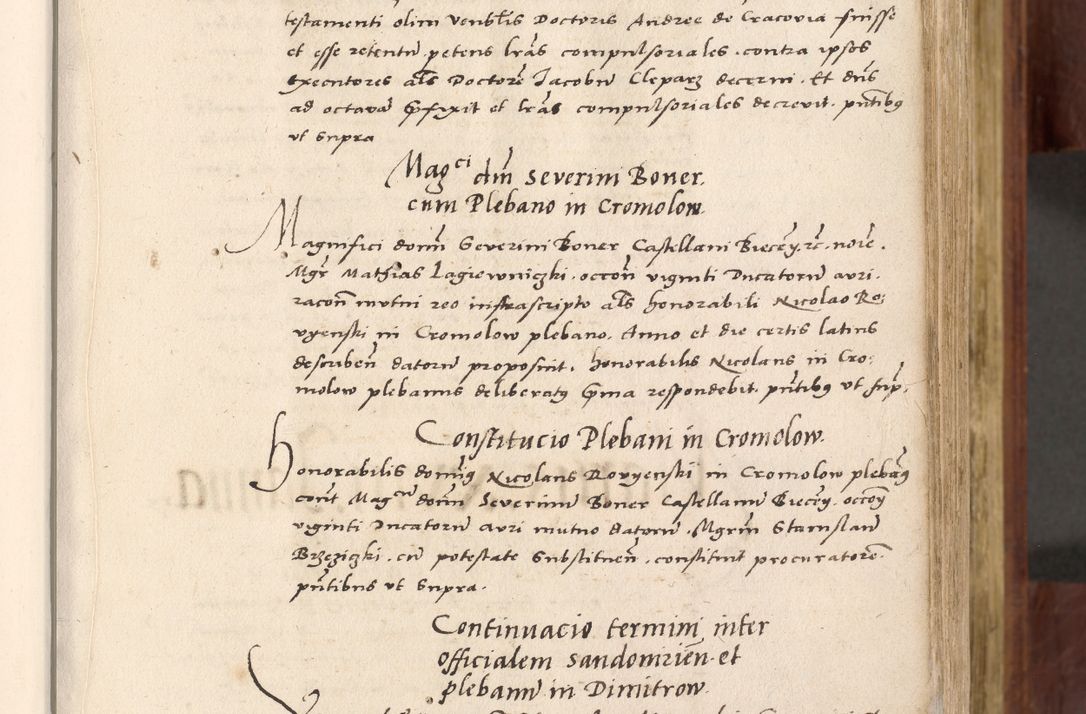 testamenti olim venblis Doctoris Andree de Cracovia fuisse
et esse retentu petens lras compulsoriales contra ipsos
Executores als Doctore Jacobu Cleparz decerni. Et dns
ad octava prefixit et lras compulsoriales decrevit. pntibus
ut supra
Magci dni Severini Boner.
cum Plebano in Cromolow.
Magnifici domini Severini Boner Castellani Biecen. rc. noie.
Mgr Mathias Lagiewniczki. occon viginti Ducatoru auri.
racon mutui reo infrascripto als honorabili Nicolao Ro:
vyenski in Cromolow plebano. Anno et die certis latius
describen datoru proposuit. honorabilis Nicolaus in Cro:
molow plebanus deliberatus prima respondebit. pntibus ut sup.
Constitucio Plebani in Cromolow.
Honorabilis dominus Nicolaus Rovyenski in Cromolow plebanus
cont Magcu domin Severinu Boner Castellanu Biecen. occon
viginti Ducatoru auri mutuo datoru. Mgrm Stanislau
Brzeziczki. cu potestate substituen. constituit procuratore.
pntibus ut supra.
Continuacio termini inter
officialem Sandomirien. et
plebanu in Dimitrow.